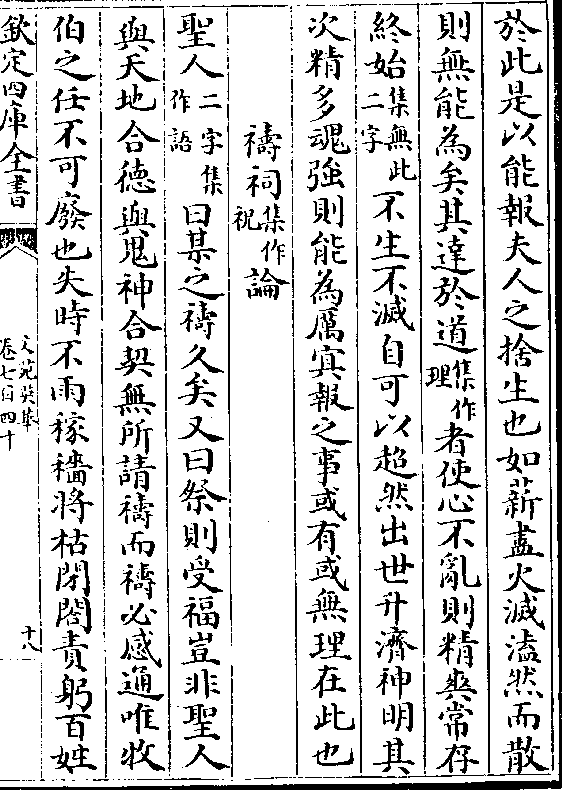 於此是以能報夫人之捨生也如薪盡火滅溘然而散
則無能為矣其達於道集作理者使心不亂則精爽常存
終始集無此二字不生不滅自可以超然出世升濟神明其
次精多魂強則能為厲冥報之事或有或無理在此也
禱祠集作祝論
聖人二字集作語曰某之禱久矣又曰祭則受福豈非聖人
與天地合德與鬼神合契無所請禱而禱必感通唯牧
伯之任不可廢也失時不雨稼穡將枯閉閤責躬百姓
欽定四庫全書
文苑英華
卷七百四十
十八